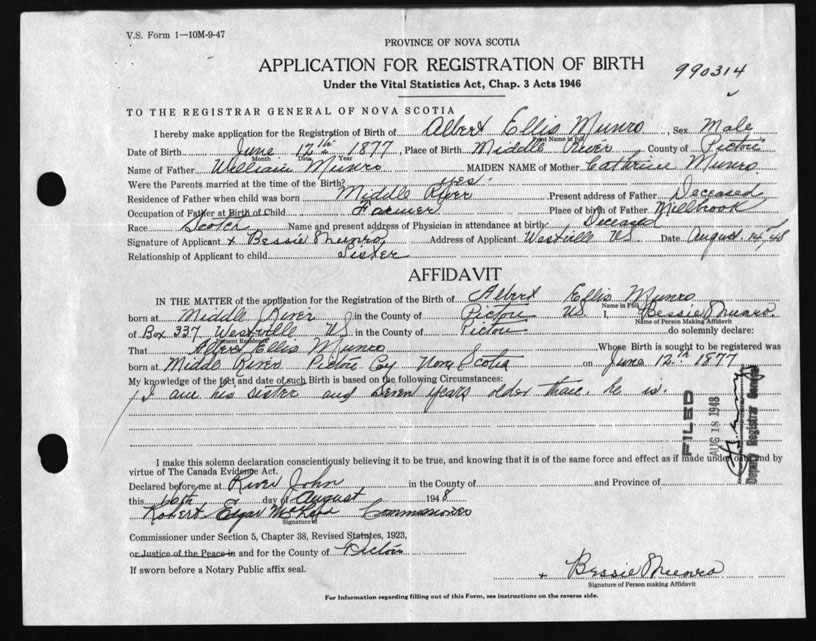 V.S. Form 1—10M-9-47
PROVINCE OF NOVA SCOTIA
APPLICATION FOR REGISTRATION OF BIRTH
990314
Under the Vital Statistics Act, Chap. 3 Acts 1946
TO THE REGISTRAR GENERAL OF NOVA SCOTIA
I hereby make application for the Registration of Birth of Albert Ellis Munro, Sex Male
Print Name in Full
Date of Birth June 12th 1877, Place of Birth Middle River County of Pictou
Month Date Year
Name of Father William Munro MAIDEN NAME of Mother Cathrine Munro
Were the Parents married at the time of the Birth? yes.
Residence of Father when child was born Middle River Present address of Father Deceased
Occupation of Father at Birth of Child Farmer Place of birth of Father Millbrook
Race Scotch Name and present address of Physician in attendance at birth Deceased
Signature of Applicant x Bessie Munro Address of Applicant Westville NS Date August 14th/48
Relationship of Applicant to child Sister
AFFIDAVIT
IN THE MATTER of the application for the Registration of the Birth of Albert Ellis Munro
Name in Full
born at Middle River in the County of Pictou NS I, Bessie Munro.
Name of Person Making Affidavit
of Box 337 Westville NS in the County of Pictou do solemnly declare:
Present Residence
That Albert Ellis Munro Whose Birth is sought to be registered was
born at Middle River Pictou Coy Nova Scotia on June 12th 1877
My knowledge of the fact and date of such Birth is based on the following Circumstances:
I am his sister and seven years older than he is.
FILED
AUG 18 1948
Deputy Registrar General
I make this solemn declaration conscientiously believing it to be true, and knowing that it is of the same force and effect as if made under oath and by
virtue of The Canada Evidence Act.
Declared before me at River John in the County of and Province of
this 16th day of August 1948
Robert Edgar Commissioner
Signature of
Commissioner under Section 5, Chapter 38, Revised Statutes, 1923,
or Justice of the Peace in and for the County of Pictou
If sworn before a Notary Public affix seal.
x Bessie Munro
Signature of Person making Affidavit
For Information regarding filling out of this Form, see instructions on the reverse side.